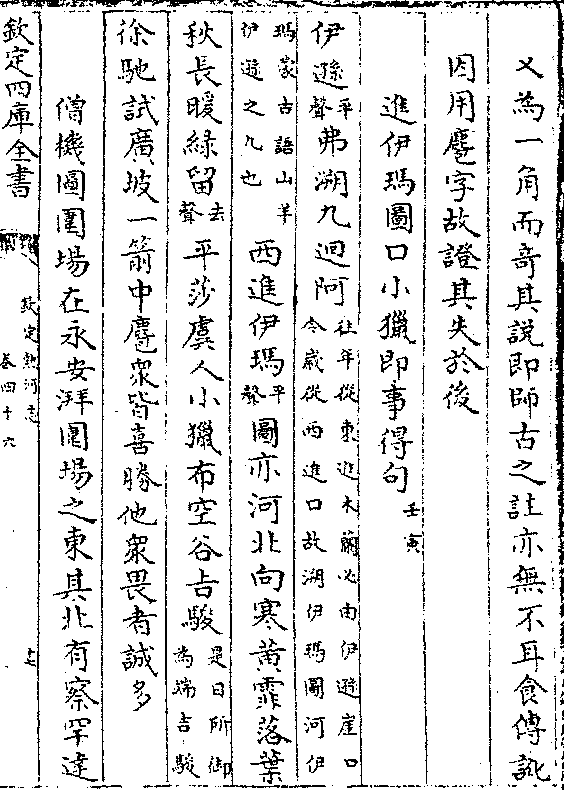 又為一角而奇其說即師古之註亦無不耳食傳訛
因用麅字故證其失於後
進伊瑪圖口小獵即事得句壬寅
伊遜平聲弗溯九迴阿往年從東進木蘭必由伊遜崖口今歲從西進口故溯伊瑪圖河伊
瑪蒙古語山羊伊遜之九也西進伊瑪平聲圖亦河北向寒黃霏落葉
秋長暖綠留去聲平莎虞人小獵布空谷吉駿是日所御為端吉駿
徐馳試廣坡一箭中麅眾皆喜勝他眾畏者誠多
僧機圖圍場在永安湃圍場之東其北有察罕達
欽定四庫全書
欽定熱河志
卷四十六